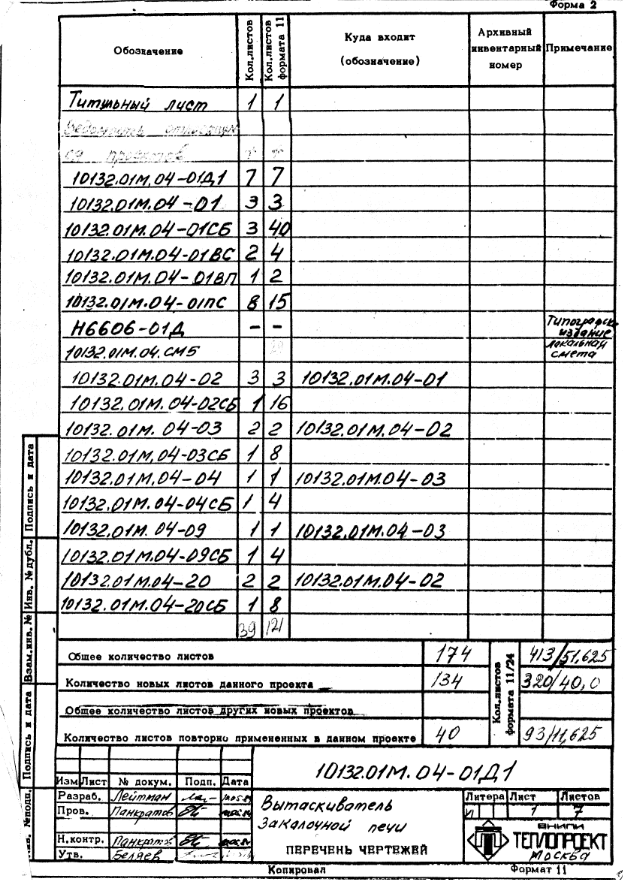 Форма 2
Обозначение Кол.листов Кол.листов формата 11 Куда входит (обозначение) Архивный инвентарный номер Примечание
Титульный лист 1 1
10132.01М.04-01Д1 7 7
10132.01М.04-01 3 3
10132.01М.04-01СБ 3 40
10132.01М.04-01ВС 2 4
10132.01М.04-01ВП 1 2
10132.01М.04-01ПС 8 15
Н6606-01Д - - Типографск. издание
10132.01М.04.СМ5 локальная смета
10132.01М.04-02 3 3 10132.01М.04-01
10132.01М.04-02СБ 1 16
10132.01М.04-03 2 2 10132.01М.04-02
10132.01М.04-03СБ 1 8
10132.01М.04-04 1 1 10132.01М.04-03
10132.01М.04-04СБ 1 4
10132.01М.04-09 1 1 10132.01М.04-03
10132.01М.04-09СБ 1 4
10132.01М.04-20 2 2 10132.01М.04-02
10132.01М.04-20СБ 1 8
39 121
Общее количество листов 174 Кол.листов формата 11/24 413/51,625
Количество новых листов данного проекта 134 320/40,0
Общее количество листов других новых проектов
Количество листов повторно примененных в данном проекте 40 93/11,625
Подпись и дата
Инв. № дубл.
Взам.инв. №
Подпись и дата
10132.01М.04-01Д1
Изм Лист № докум. Подп. Дата
Разраб. Лейтман
Пров. Панкратов
Н.контр. Панкратов
Утв. Беляев
Вытаскиватель
закалочной печи
ПЕРЕЧЕНЬ ЧЕРТЕЖЕЙ
Литера Лист Листов
И 1 7
ВНИПИ
ТЕПЛОПРОЕКТ
Москва
Копировал Формат 11